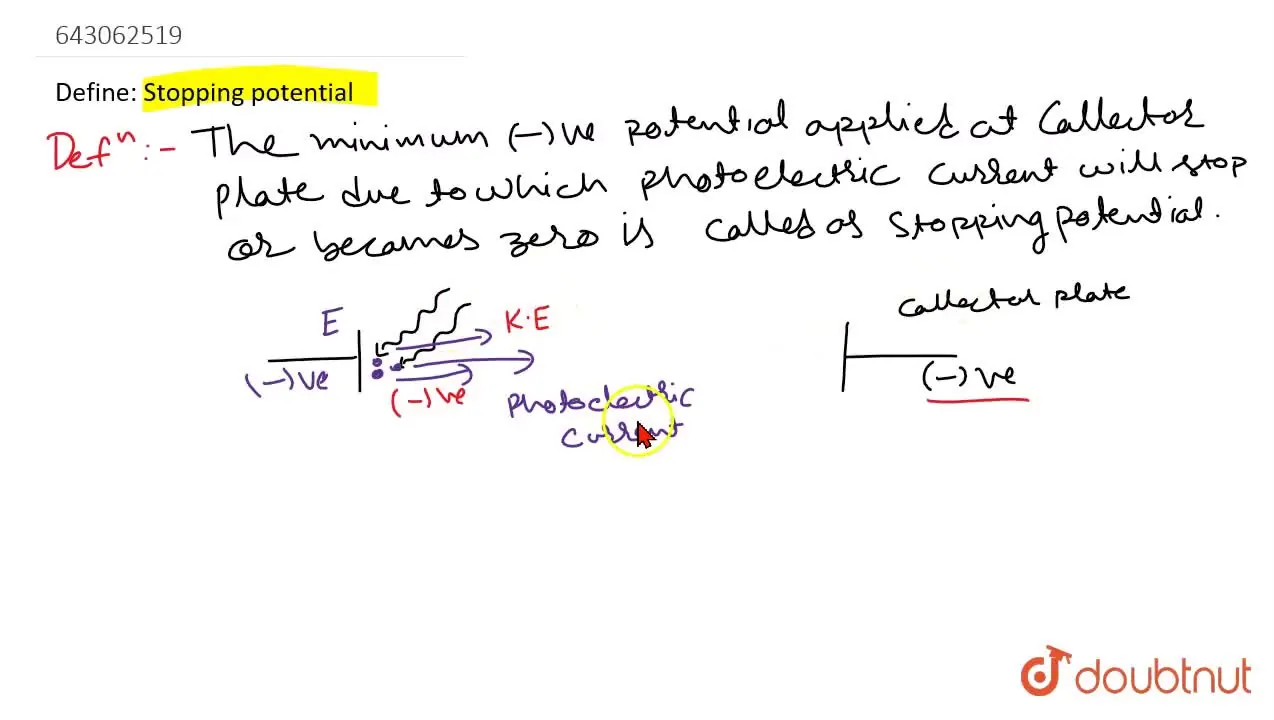 643062519
Define: Stopping potential
Defⁿ :- The minimum (-)ve potential applied at Collector
plate due to which photoelectric current will stop
or becomes zero is called as stopping potential.
Collector plate
E
K.E
(-)ve
(-)ve
(-)ve
Photoelectric
Current
doubtnut